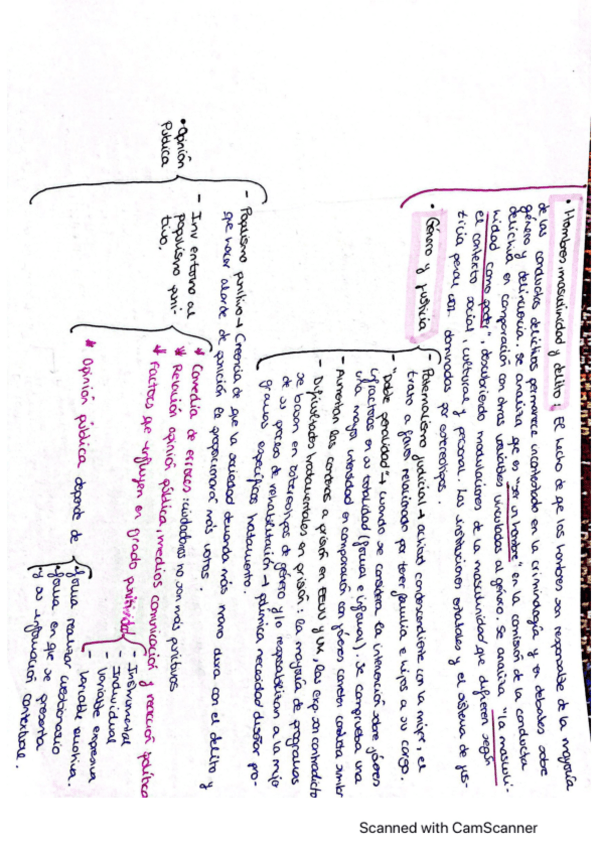 • Hombres masculinidad y delito: El hecho de que los hombres son responsable de la mayoría
de las conductas delictivas permanece incontestado en la criminología y en debates sobre
género y delincuencia. Se analiza que es "ser un hombre" en la comisión de la conducta
delictiva en comparación con otras variables vinculadas al género. Se analiza "la masculi-
nidad como poder", descubriendo modulaciones de la masculinidad que difieren según
el contexto social, cultural y personal. Las instituciones estatales y el sistema de jus-
ticia penal derivadas por estereotipos.
• Género y justicia
- Paternalismo judicial → actitud condescendiente con la mujer, el
trato a favor relacionado por tener familia e hijos a su cargo.
- "Doble penalidad" → cuando se considera la intervención sobre jóvenes
infractoras en su totalidad (formal e informal). Se comprueba una
una mayor intensidad en comparación con jóvenes cometen conductas similar
- Aumentan las condenas a prisión en EEUU y UK, las exp son contradicto
- Dificultades tratamentales en prisión: la mayoría de programas
se basan en estereotipos de género y/o responsabilizan a la mujer
de su proceso de rehabilitación → polémica necesidad diseñar pro-
gramas específicos tratamiento.
• Opinión
pública
- Populismo punitivo → Creencia de que la sociedad demanda más mano dura con el delito y
que hacer alarde de posición le proporcionará más votos.
- Inv entorno al
populismo puni-
tivo.
* Comedia de errores: ciudadanos no son más punitivos
* Revisión opinión pública, medios comunicación y reacción política
* Factores que influyen en grado punitividad
- Instrumental
- Individual
- Variable expresiva
- Variable emotiva.
* Opinión pública depende de
forma realizar cuestionario
forma en que se presenta
y su información contextual.
Scanned with CamScanner